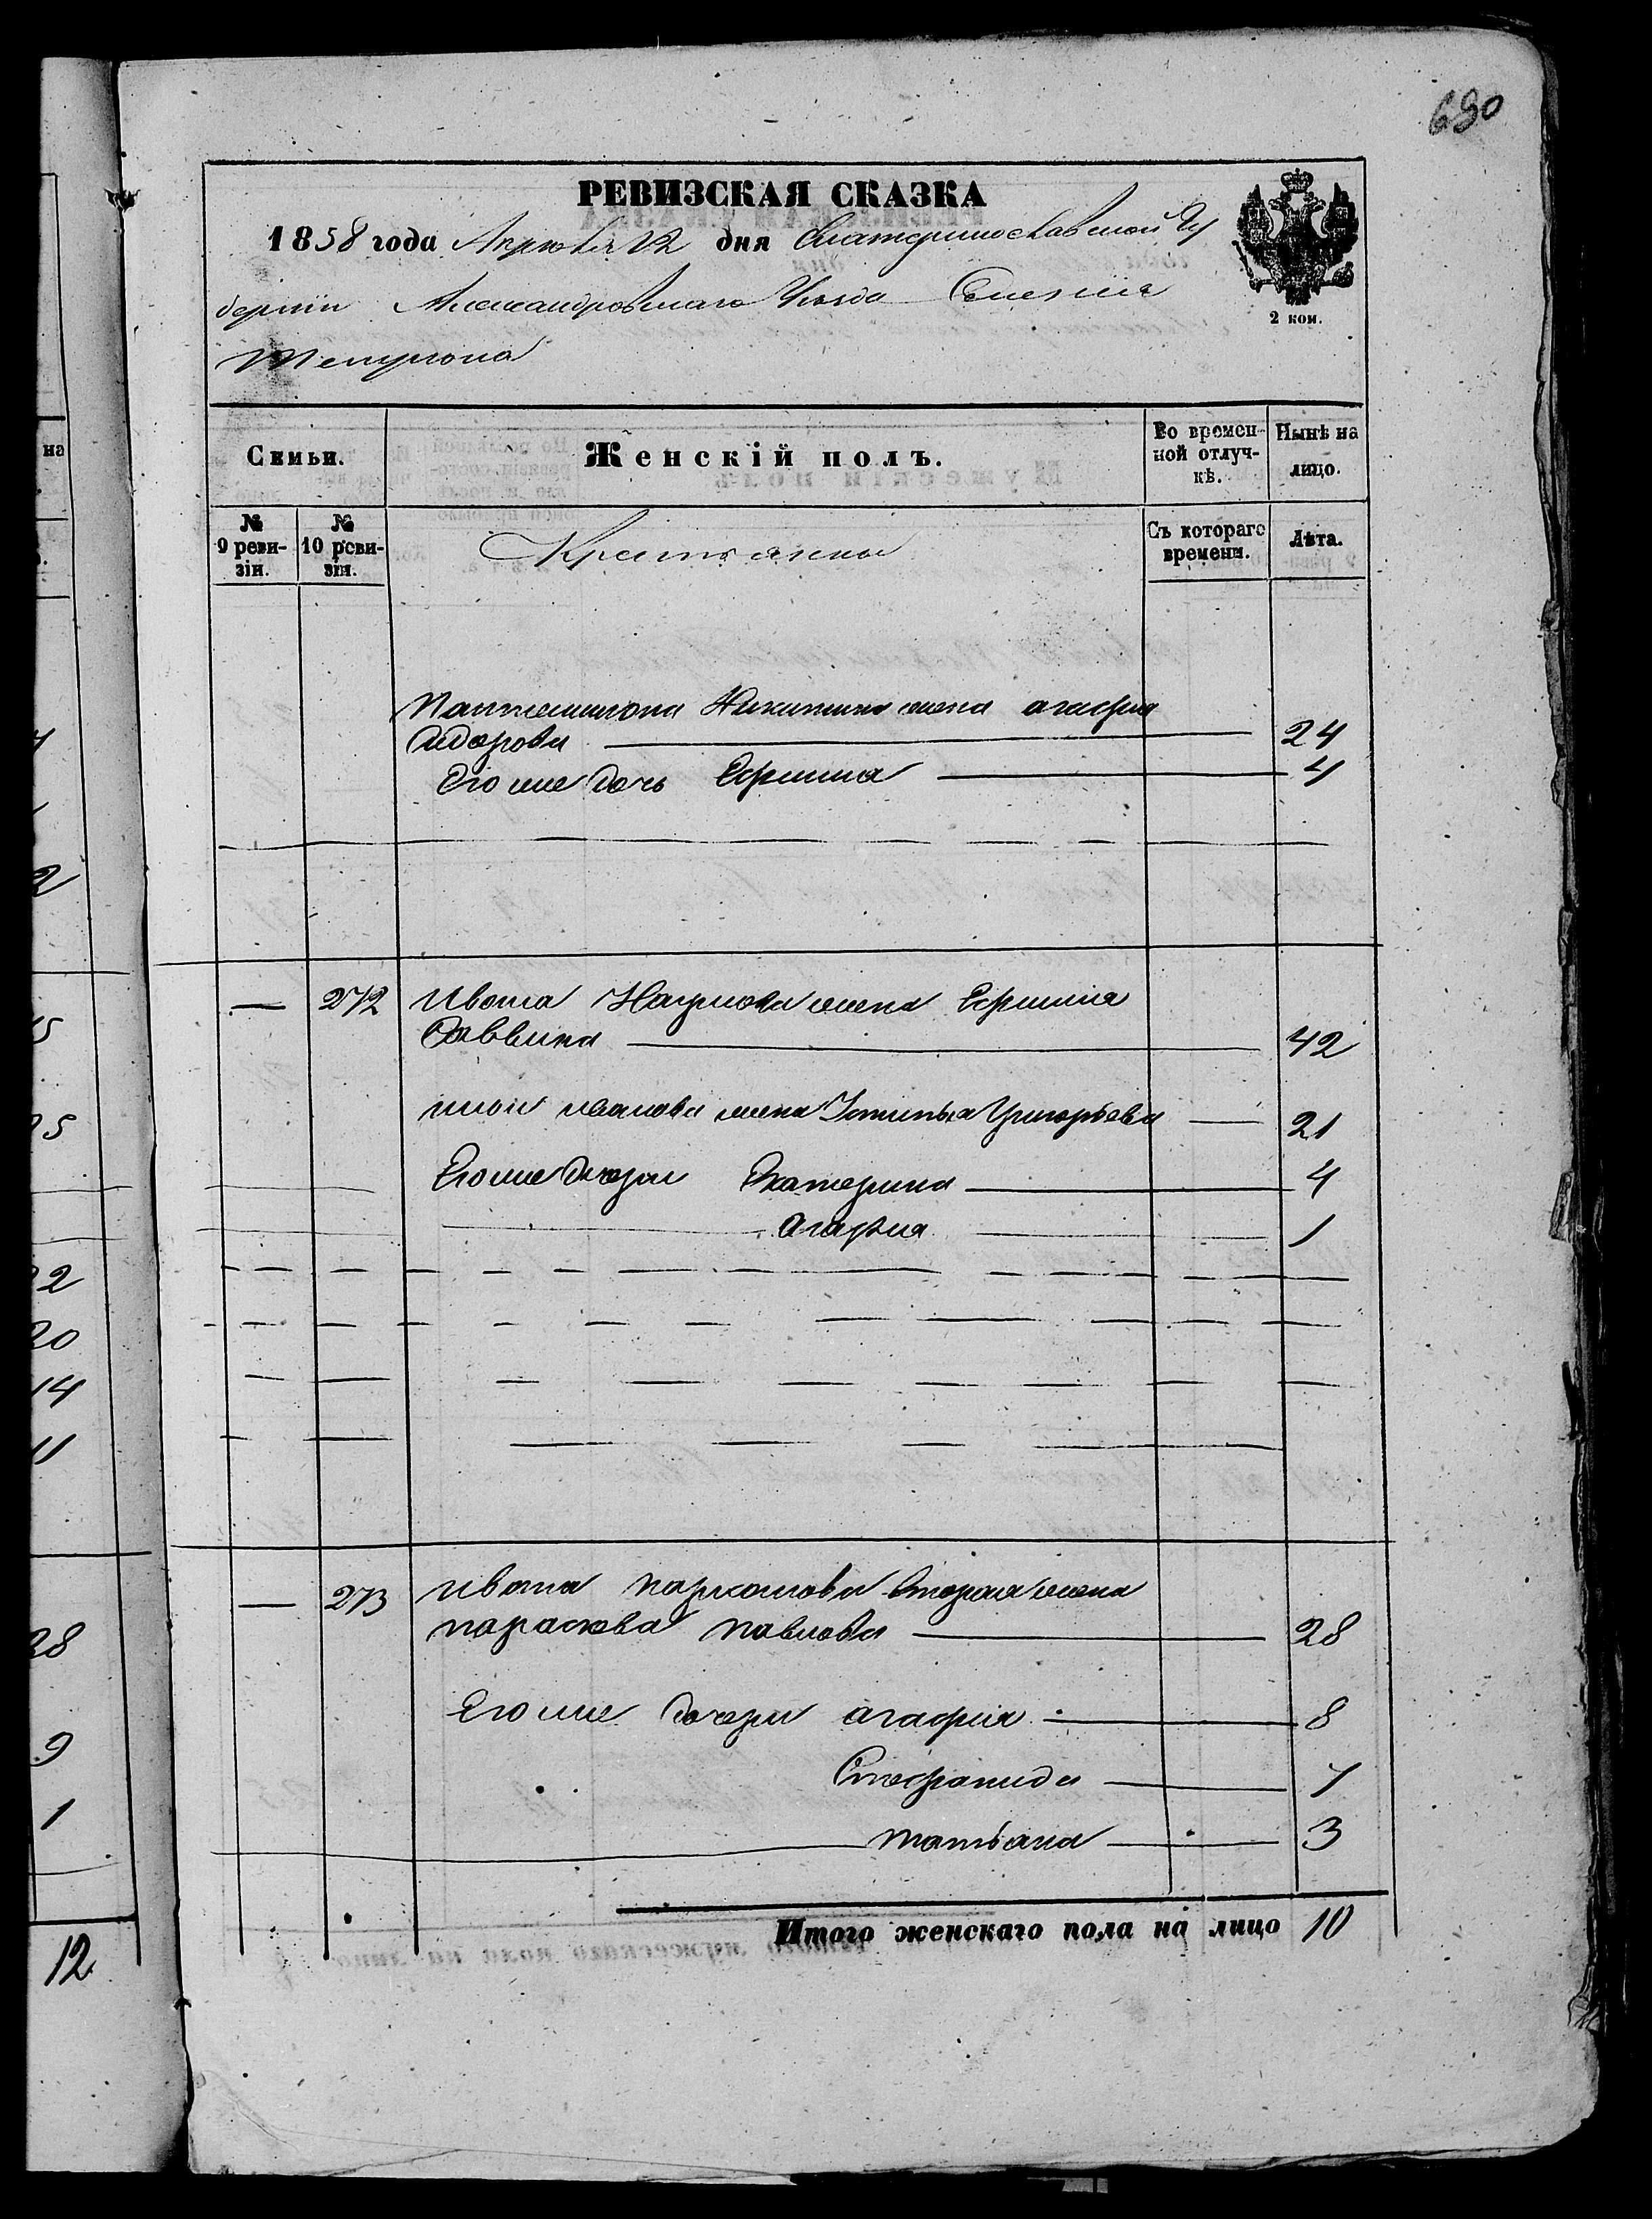 690
РЕВИЗСКАЯ СКАЗКА
1858 года Апреля 12 дня Екатеринославской Гу
берніи Александровскаго Уѣзда Селенія
2 коп.
Семьи.
Женскій полъ.
Во времен-
ной отлуч-
кѣ.
Нынѣ на
лицо.
№
9 реви-
зіи.
№
10 реви-
зіи.
Крестьяне
Съ котораго
времени.
Лѣта.
Пантелимона Никитина жена агафия
Сидорова 24
Его же дочь Ефимия 4
— 272 Ивана Наумова жена Ефимия
Саввина 42
Ивана жена Устинья Григорьева 21
Его же дочери Екатерина 4
Агафия 1
— 273 Ивана Пархомова вторая жена
параскева павлова 28
Его же дочери агафия 8
Стефанида 7
татьяна 3
Итого женскаго пола на лицо 10
на
2
15
25
22
20
14
11
28
9
1
12